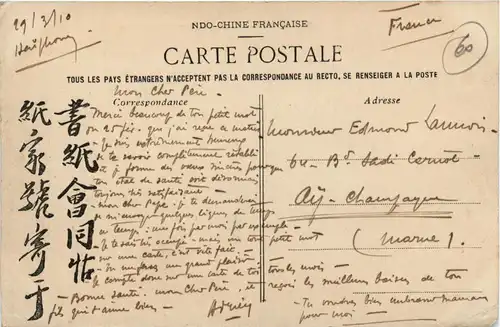 29/3/10
Haïphong
NDO-CHINE FRANÇAISE
France
60
CARTE POSTALE
TOUS LES PAYS ÉTRANGERS N'ACCEPTENT PAS LA CORRESPONDANCE AU RECTO, SE RENSEIGNER A LA POSTE
Correspondance
Adresse
mon Cher Père.
Merci beaucoup de ton petit mot
du 20 fév. que j'ai reçu ce matin
je suis extrêmement heureux
de te savoir complètement rétabli
et je forme des vœux sincères pour que
ton état de santé soit désormais
toujours très satisfaisant -
- mon cher Papa. je te demanderai
de m'envoyer quelques lignes de temps
en temps : une fois par mois par exemple -
Je te sais très occupé - mais un tout petit mot
sur une carte, c'est vite fait. -
- Tu me feras un grand plaisir
Je compte donc sur une carte de toi
tous les mois -
- Bonne santé. mon Cher Père, et
reçois les meilleurs baisers de ton
fils qui t'aime bien -
- Tu voudras bien embrasser maman
pour moi -
Monsieur Edmond
64 - Bd Sadi Carnot -
Aÿ - Champagne
(Marne).
書紙會同怙
紙家號寄于